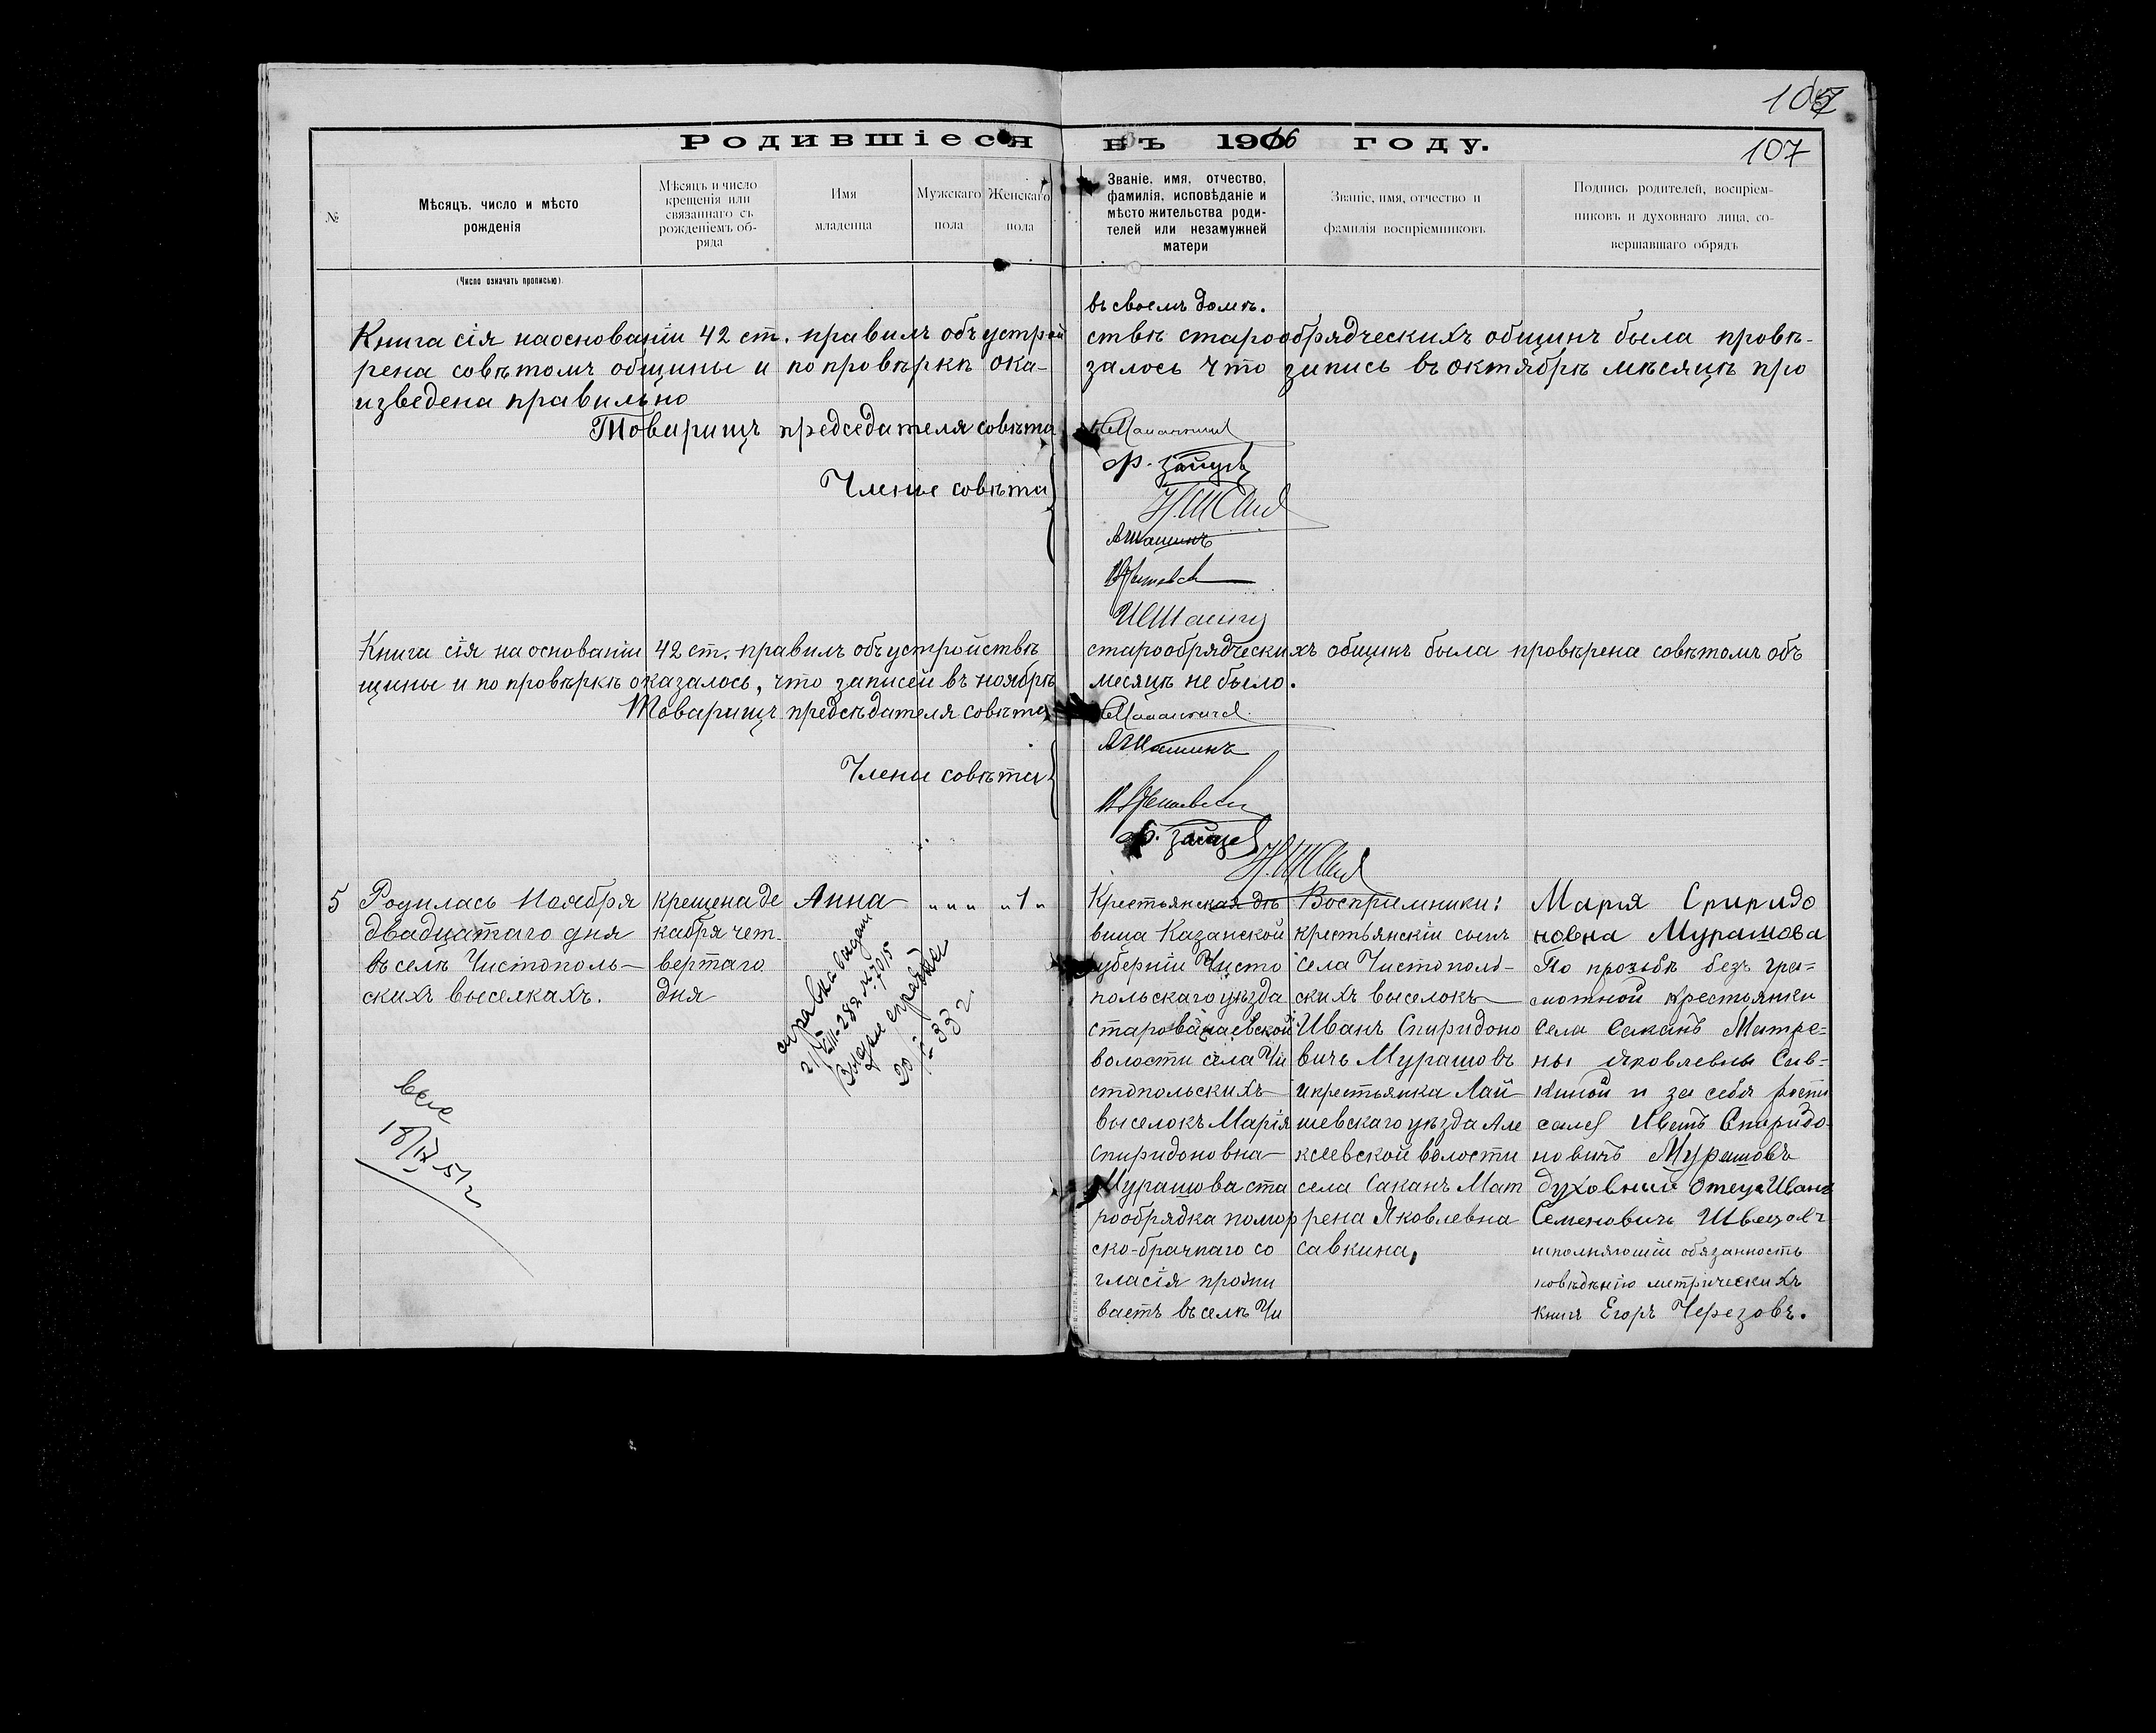 107
Родившіеся въ 1916 году.
107
№
Мѣсяцъ, число и мѣсто
рожденія
Мѣсяцъ и число
крещенія или
связаннаго съ
рожденіемъ об-
ряда
Имя
младенца
Мужскаго
пола
Женскаго
пола
Званіе, имя, отчество,
фамилія, исповѣданіе и
мѣсто жительства роди-
телей или незамужней
матери
Званіе, имя, отчество и
фамилія воспріемниковъ
Подпись родителей, воспріем-
никовъ и духовнаго лица, со-
вершавшаго обрядъ
(Число означать прописью).
въ своемъ домѣ.
Книга сія на основаніи 42 ст. правилъ объ устрой ствѣ старообрядческихъ общинъ была провѣ-
рена совѣтомъ общины и по провѣркѣ ока- залось что запись въ октябрѣ мѣсяцѣ про
изведена правильно
Товарищъ председателя совѣта
Ф. Зайцевъ
Члены совѣта
АШашинъ
Книга сія на основаніи 42 ст. правилъ объ устройствѣ старообрядческихъ общинъ была провѣрена совѣтомъ об
щины и по провѣркѣ оказалось, что записей въ ноябрѣ месяцѣ не было.
Товарищъ предсѣдателя совѣта
АШашинъ
Члены совѣта
Ф. Зайцев
5
Родилась Ноября
двадцатаго дня
въ селѣ Чистополь-
скихъ выселкахъ.
крещена де
кабря чет-
вертаго
дня
Анна
" " "
" 1 "
справка выдана
20/I-33 г.
18/IV-51 г
Крестьянская дѣ
вица Казанской
губерніи Чисто
польскаго уѣзда
старо
волости села Чи
стопольскихъ
выселокъ Марія
Спиридоновна
Мурашова ста
рообрядка помор
ско-брачнаго со
гласія прожи
ваетъ въ селѣ Чи
Воспріемники:
крестьянскій сынъ
села Чистополь-
скихъ выселокъ
Иванъ Спиридоно
вичъ Мурашовъ
и крестьянка Лаи
шевскаго уѣзда Але
ксеевской волости
села Саканъ Мат
рена Яковлевна
Савкина,
Марія Спиридо
новна Мурашова
По прозьбѣ безъ гра=
мотной крестьянки
села Саканъ Матре=
ны Яковлевны Сав-
киной и за себя роспи
салса Иванъ Спиридо-
новичъ Мурашовъ
духовный отецъ Иванъ
Семеновичъ Швецовъ
исполняющій обязанность
по веденію метрическихъ
книгъ Егоръ Черезовъ.